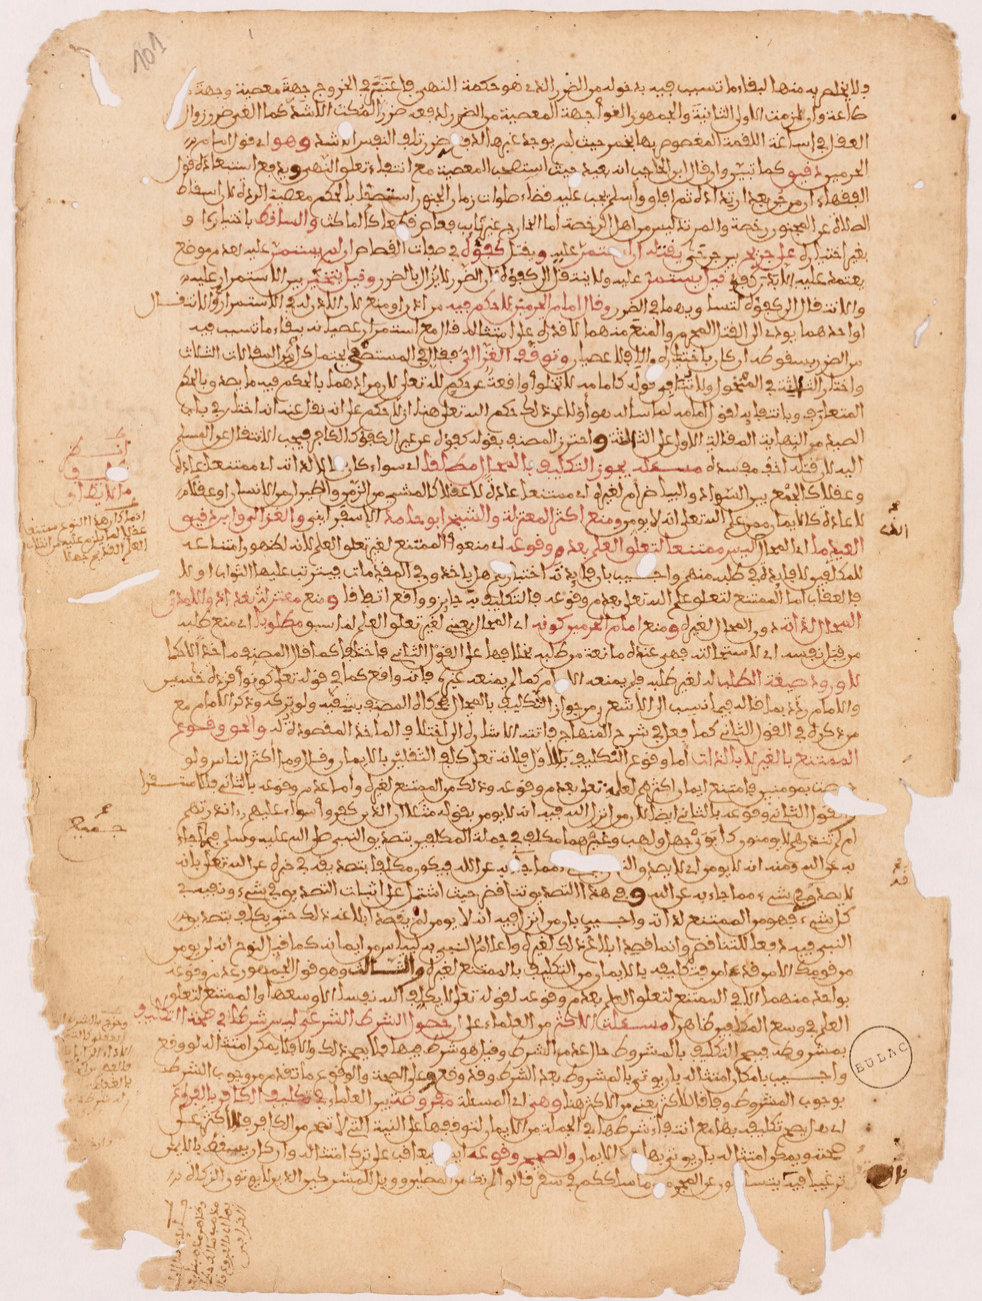 101
ولا يخلص به منها لبقاء ما تسبب فيه بدخوله من الضرر الذي هو حكمة النهي فاعتبر في الخروج جهة معصية وجهة
طاعة وإن لزمت الأولى الثانية والجمهور ألغوا جهة المعصية من الضرر لدفعه ضرر المكث الأشد كما ألغي ضرر زوال
العقل في إساغة اللقمة المغصوص بها بخمر حيث لم يوجد غيرها لدفعه ضرر تلف النفس الأشد وهو أي قول إمام
الحرمين دقيق كما تبين وإن قال ابن الحاجب إنه بعيد حيث استصحب المعصية مع انتفاء تعلق النهي ويدفع استبعاده قول
الفقهاء إن من جن بعد ارتداده ثم أفاق وأسلم يجب عليه قضاء صلوات زمان الجنون استصحابا لحكم معصية الردة لأن إسقاط
الصلاة عن المجنون رخصة والمرتد ليس من أهل الرخصة أما الخارج غير تائب فعاص قطعا كالماكث والساقط باختياره أو
بغير اختياره على جريح بين جرحى يقتله إن استمر عليه ويقتل كفؤه في صفات القصاص إن لم يستمر عليه لعدم موضع
يعتمد عليه إلا بدن كفؤ قيل يستمر عليه ولا ينتقل إلى كفؤه لأن الضرر لا يزال بالضرر وقيل يتخير بين الاستمرار عليه
والانتقال إلى كفؤه لتساويهما في الضرر وقال إمام الحرمين لا حكم فيه من إذن أو منع لأن الإذن له في الاستمرار والانتقال
أو أحدهما يؤدي إلى القتل المحرم والمنع منهما لا قدرة على امتثاله قال مع استمرار عصيانه ببقاء ما تسبب فيه
من الضرر بسقوطه إن كان باختياره وإلا فلا عصيان وتوقف الغزالي فقال في المستصفى يحتمل كل من المقالات الثلاث
واختار الثالثة في المنخول ولا ينافيه قوله كإمامه لا تخلو واقعة عن حكم لله تعالى لأن مرادهما بالحكم فيه ما يصدق بالحكم
المتعارف وبانتفائه لقول إمامه لما سأله هو أولا عن ذلك حكم الله تعالى هنا أن لا حكم على أنه نقل عنه أنه اختار في باب
الصيد من النهاية المقالة الأولى على الثالثة واحترز المصنف بقوله كفؤه عن غير الكفؤ كالكافر فيجب الانتقال عن المسلم
إليه لأن قتله أخف مفسدة مسئلة يجوز التكليف بالمحال مطلقا أي سواء كان محالا لذاته أي ممتنعا عادة
وعقلا كالجمع بين السواد والبياض أم لغيره أي ممتنعا عادة لا عقلا كالمشي من الزمن والطيران من الإنسان أو عقلا
لا عادة كالإيمان ممن علم الله تعالى أنه لا يؤمن ومنع أكثر المعتزلة والشيخ أبو حامد الاسفرايني والغزالي وابن دقيق
العيد ما أي المحال الذي ليس ممتنعا لتعلق العلم بعدم وقوعه أي منعوا الممتنع لغير تعلق العلم لأنه لظهور امتناعه
للمكلفين لا فائدة في طلبه منهم وأجيب بأن فائدته اختبارهم هل يأخذون في المقدمات فيترتب عليها الثواب أو لا
فالعقاب أما الممتنع لتعلق علم الله تعالى بعدم وقوعه فالتكليف به جائز وواقع اتفاقا ومنع معتزلة بغداد والآمدي
المحال لذاته دون المحال لغيره ومنع إمام الحرمين كونه أي المحال يعني لغير تعلق العلم لما سبق مطلوبا أي منع طلبه
من قبل نفسه أي لاستحالته فهي عنده مانعة من طلبه بخلافها على القول الثاني فاختلفا كما قال المصنف مأخذا لا حكما
لا ورود صيغة الطلب له لغير طلبه فلم يمنعه الإمام كما لم يمنعه غيره فإنه واقع كما في قوله تعالى كونوا قردة خاسئين
والإمام ردد بما قاله فيما نسب إلى الأشعري من جواز التكليف بالمحال فحكاه المصنف بشقيه ولو تركه وذكر الإمام مع
من ذكره في القول الثاني كما فعل في شرح المنهاج فاتته الإشارة إلى اختلاف المأخذ المقصودة له والحق وقوع
الممتنع بالغير لا بالذات أما وقوع التكليف بالأول فلأنه تعالى كلف الثقلين بالإيمان وقال وما أكثر الناس ولو
حرصت بمؤمنين فامتنع إيمان أكثرهم لعلمه تعالى بعدم وقوعه وذلك من الممتنع لغيره وأما عدم وقوعه بالثاني فللاستقراء
والقول الثاني وقوعه بالثاني أيضا لأن من أنزل الله فيه أنه لا يؤمن بقوله مثلا إن الذين كفروا سواء عليهم أأنذرتهم
أم لم تنذرهم لا يؤمنون كأبي جهل وأبي لهب وغيرهما مكلف في جملة المكلفين بتصديق النبي صلى الله عليه وسلم فيما جاء
به عن الله ومنه أنه لا يؤمن أي لا يصدق النبي في شيء مما جاء به عن الله فيكون مكلفا بتصديقه في خبره عن الله تعالى بأنه
لا يصدقه في شيء مما جاء به عن الله وفي هذا التصديق تناقض حيث اشتمل على إثبات التصديق في شيء ونفيه في
كل شيء فهو من الممتنع لذاته وأجيب بأن من أنزل فيه أنه لا يؤمن لم يقصد إبلاغه ذلك حتى يكلف بتصديق
النبي فيه دفعا للتناقض وإنما قصد إبلاغ ذلك لغيره وإعلام النبي به لييأس من إيمانه كما قيل لنوح أنه لن يؤمن
من قومك إلا من قد آمن فتكليفه بالإيمان من التكليف بالممتنع لغيره والثالث وهو قول الجمهور عدم وقوعه
بواحد منهما إلا في الممتنع لتعلق العلم بعدم وقوعه لقوله تعالى لا يكلف الله نفسا إلا وسعها والممتنع لتعلق
العلم في وسع المكلفين ظاهرا مسئلة الأكثر من العلماء على أن حصول الشرط الشرعي ليس شرطا في صحة التكليف
بمشروطه فيصح التكليف بالمشروط حال عدم الشرط وقيل هو شرط فيها فلا يصح ذلك وإلا فلا يمكن امتثاله لو وقع
وأجيب بإمكان امتثاله بأن يؤتى بالمشروط بعد الشرط وقد وقع وعلى الصحة والوقوع ما تقدم من وجوب الشرط
بوجوب المشروط وفاقا للأكثر يعني من الأكثر هنا وهي أي المسئلة مفروضة بين العلماء في تكليف الكافر بالفروع
أي هل يصح تكليفه بها مع انتفاء شرطها في الجملة من الإيمان لتوقفها على النية التي لا تصح من الكافر فالأكثر على
صحته ويمكن امتثاله بأن يؤتى بها بعد الإيمان والصحيح وقوعه أيضا فيعاقب على ترك امتثاله وإن كان يسقط بالإيمان
ترغيبا فيه يتساءلون عن المجرمين ما سلككم في سقر قالوا لم نك من المصلين وويل للمشركين الذين لا يؤتون الزكاة
EULAC